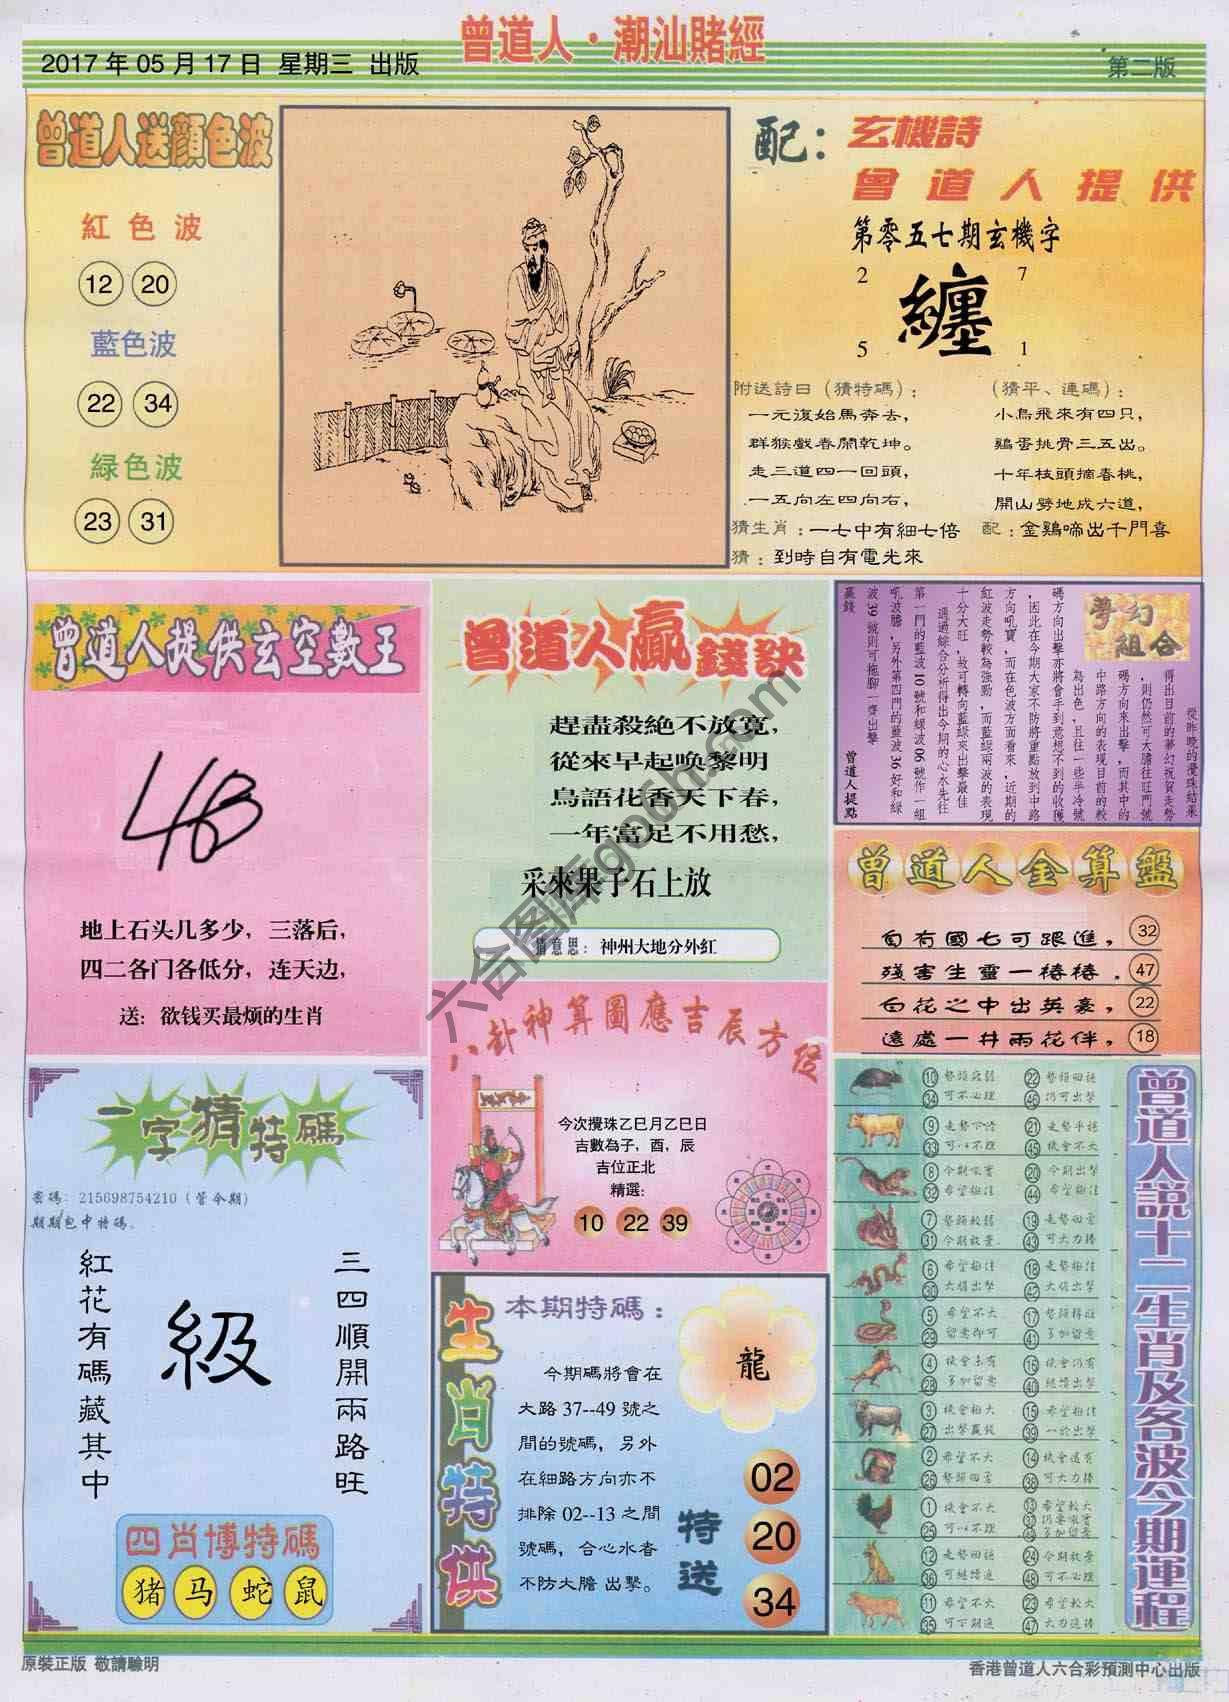 曾道人·潮汕賭經
2017年05月17日 星期三 出版
第二版
曾道人送顏色波
紅色波
12 20
藍色波
22 34
緑色波
23 31
配：玄機詩
曾道人提供
第零五七期玄機字
2 7
纏
5 1
附送詩曰（猜特碼）：
一元復始馬奔去，
群猴戲春鬧乾坤。
走三道四一回頭，
一五向左四向右，
（猜平、連碼）：
小鳥飛來有四只，
鷄蛋挑骨三五出。
十年枝頭摘春桃，
開山劈地成六道，
猜生肖：一七中有細七倍 配：金鷄啼出千門喜
猜：到時自有電光來
曾道人提供玄空數王
48
地上石头几多少，三落后，
四二各门各低分，连天边，
送：欲钱买最烦的生肖
曾道人贏錢訣
趕盡殺絶不放寬，
從來早起唤黎明
鳥語花香天下春，
一年富足不用愁，
采來果子石上放
猜意思：神州大地分外紅
夢幻組合
從昨晚的攪珠結果
得出目前的夢幻祝賀走勢
，則仍然可大膽往旺門號
碼方向來出擊，而其中的
中路方向的表現目前的較
為出色，且往一些半冷號
碼方向出擊亦將會手到意想不到的收穫
，因此在今期大家不防將重點放到中路
方向吼寶，而在色波方面看來，近期的
紅波走勢較為强勁，而藍緑兩波的表現
十分大旺，故可轉向藍緑來出擊最佳
通過綜合分析得出今期的心水先往
第一門的藍波10號和緑波06號作一組
吼波膽，另外第四門的藍波36好和緑
波39號則可拖腳一齊出擊
贏錢 曾道人提點
曾道人金算盤
旬有國七可跟進，32
殘害生靈一樁樁．47
白花之中出英豪，22
遠處一井兩花伴，18
八卦神算圖應吉辰方位
今次攪珠乙巳月乙巳日
吉數為子，酉，辰
吉位正北
精選：
10 22 39
一字猜特碼
密碼：215698754210（管今期）
期期包中特碼。
三四順開兩路旺
級
紅花有碼藏其中
四肖博特碼
猪 马 蛇 鼠
生肖特供
本期特碼：
龍
今期碼將會在
大路37--49號之
間的號碼，另外
在細路方向亦不
排除02--13之間
號碼，合心水者
不防大膽 出擊。
特送
02
20
34
曾道人說十二生肖及各波今期運程
原裝正版 敬請驗明
香港曾道人六合彩預測中心出版
六合图库gooh.com